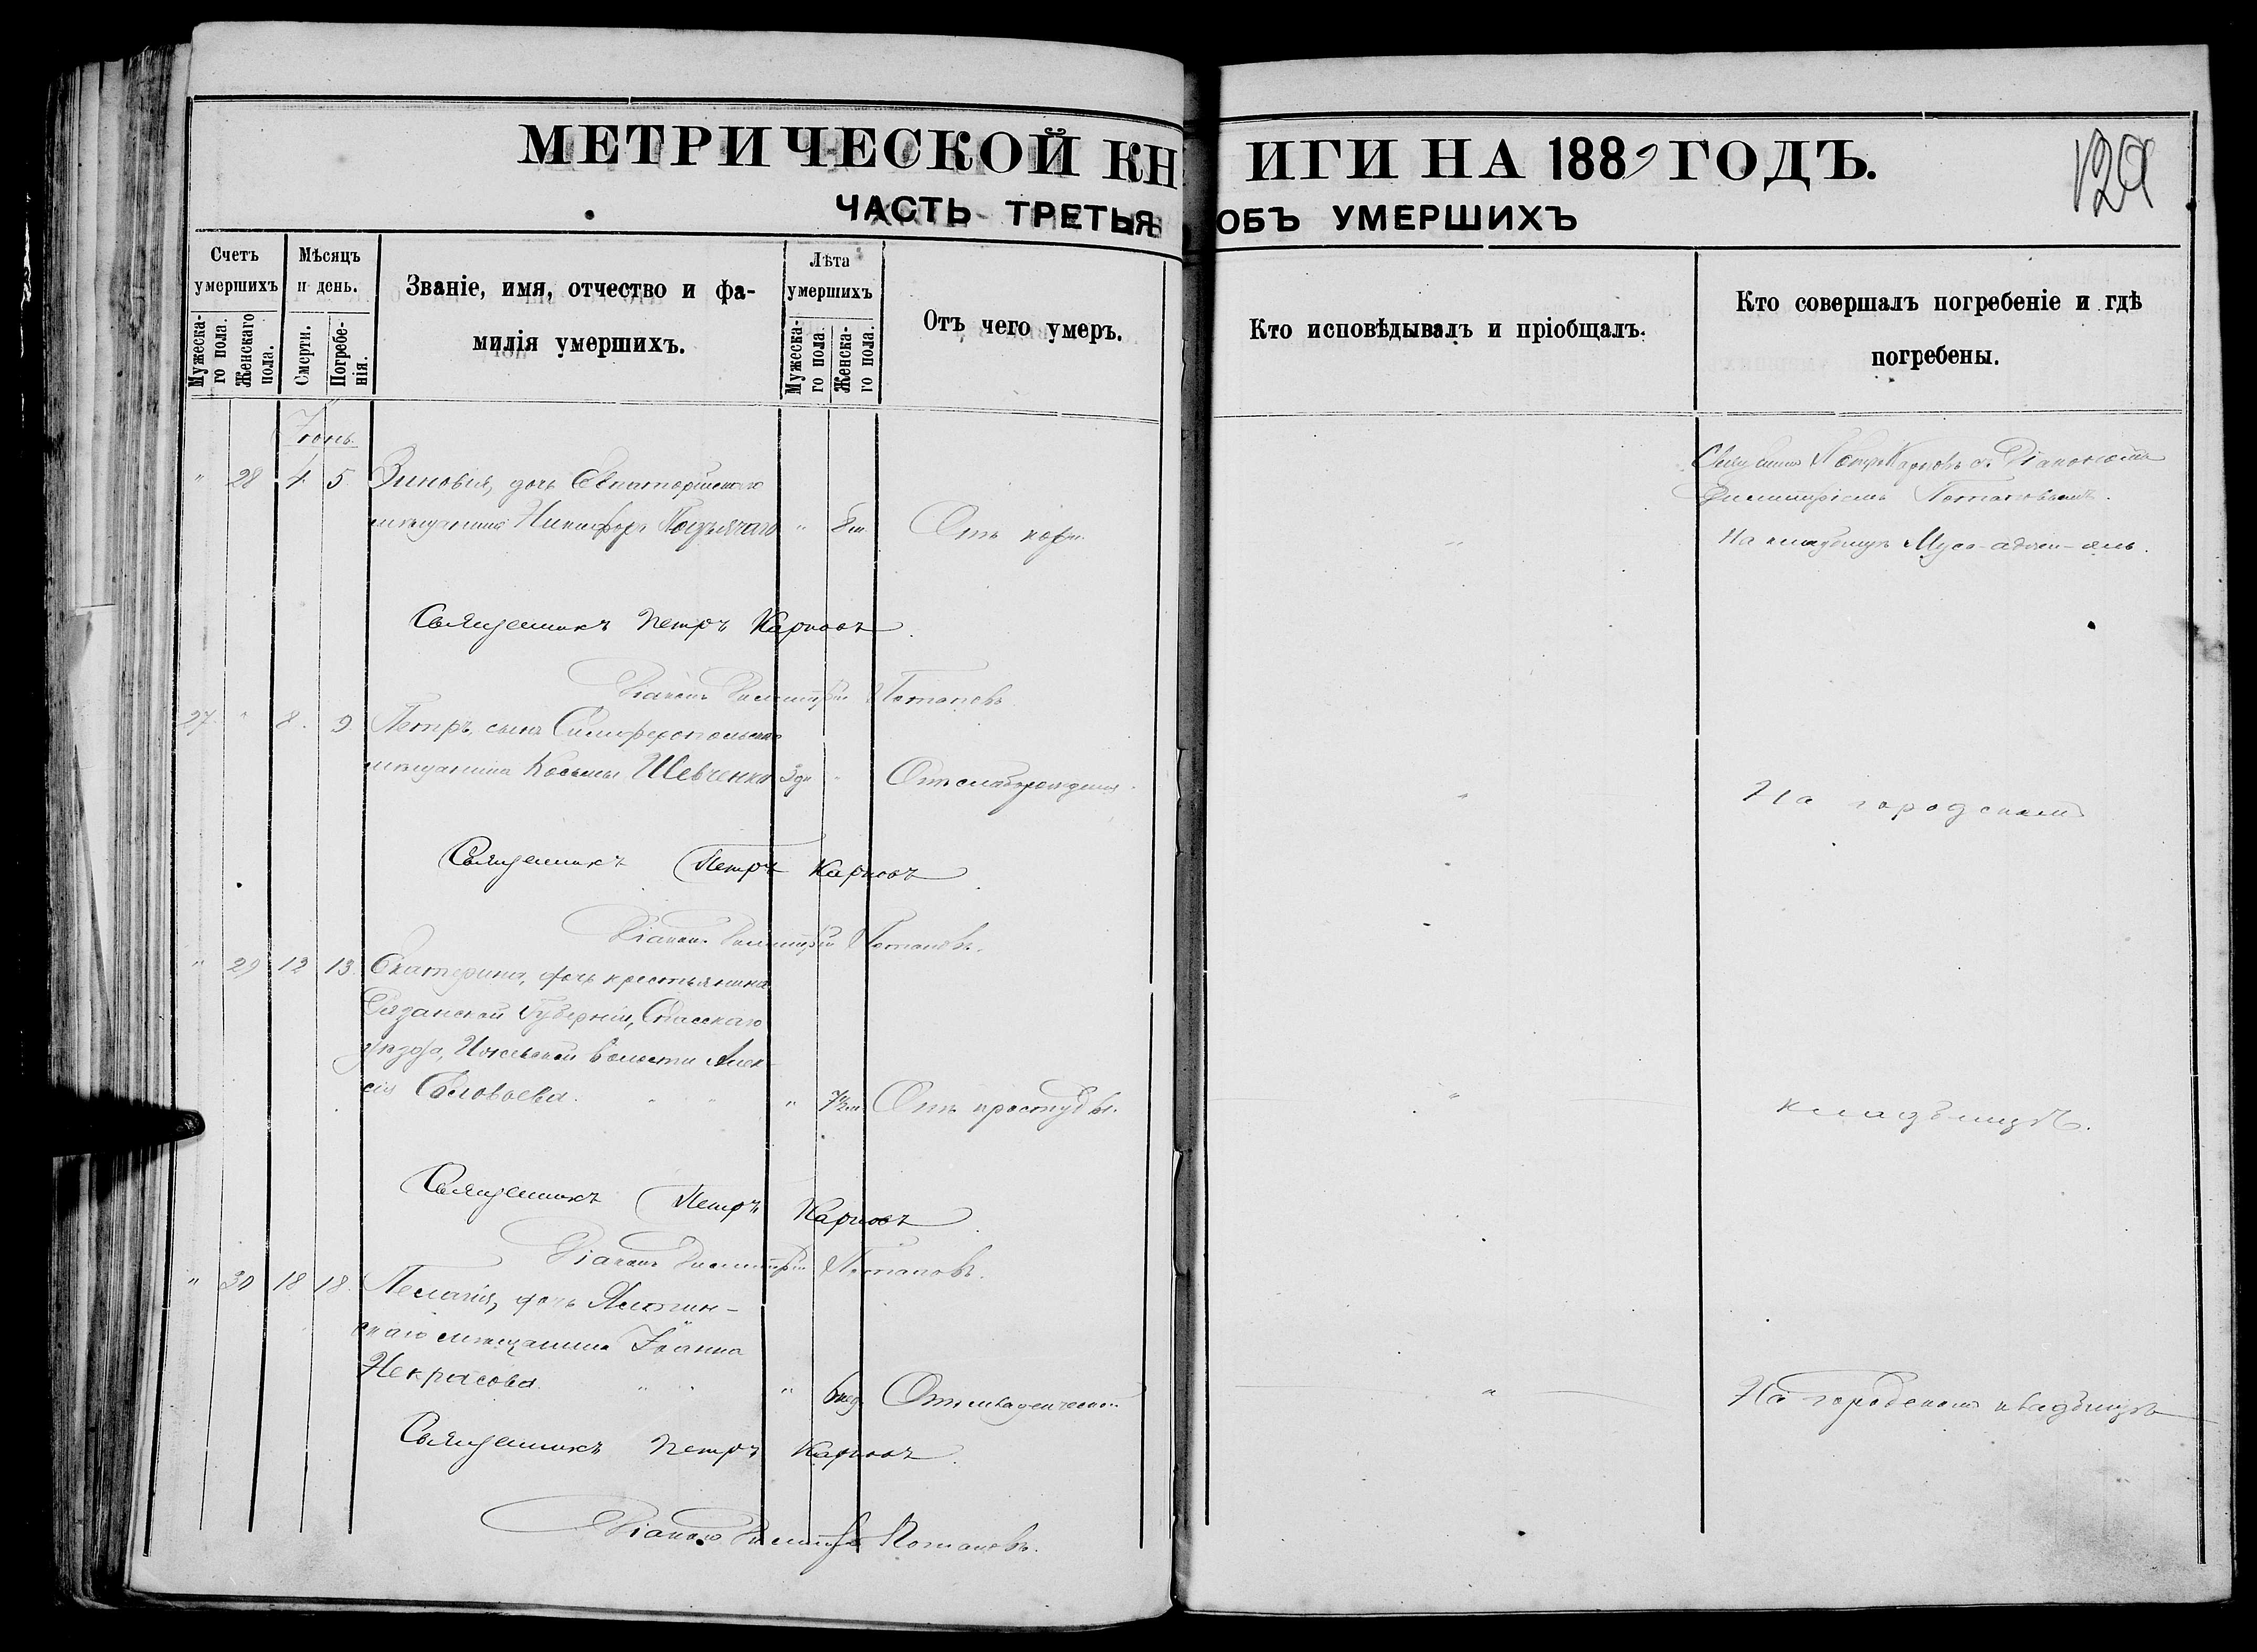 МЕТРИЧЕСКОЙ КНИГИ НА 1889 ГОДЪ.
129
ЧАСТЬ ТРЕТЬЯ ОБЪ УМЕРШИХЪ
Счетъ умершихъ
Мужескаго пола.
Женскаго пола.
Мѣсяцъ и день.
Смерти.
Погребенія.
Званіе, имя, отчество и фа-
милія умершихъ.
Лѣта умершихъ
Мужескаго пола
Женскаго пола.
Отъ чего умеръ.
Кто исповѣдывалъ и пріобщалъ.
Кто совершалъ погребеніе и гдѣ
погребены.
Іюнь.
" 28 4 5 Зиновия, дочь Евпаторійскаго
мѣщанина Никифора " 8 м. Отъ кори.
Петръ Карповъ съ Діакономъ
Димитріемъ Потаповымъ.
На кладбищѣ
Священникъ Петръ Карповъ.
Діаконъ Димитрій Потаповъ.
27 " 8 9 Петръ, сынъ Симферопольскаго
мѣщанина Косьмы Шевченко 3 дн " Отъ слаборожденія. " На городскомъ
Священникъ Петръ Карповъ.
Діаконъ Димитрій Потаповъ.
" 29 12 13 Екатерина, дочь крестьянина
Рязанской Губерніи, Спасскаго
уѣзда, Ижевской волости Алек-
сія Соловьева. " Отъ простуды. " кладбищѣ.
Священникъ Петръ Карповъ.
Діаконъ Димитрій Потаповъ.
" 30 18 18 Пелагія, дочь Ялтин-
скаго мѣщанина Іоанна
Некрасова " 6 нед. Отъ младенческой " На городскомъ кладбищѣ
Священникъ Петръ Карповъ.
Діаконъ Димитрій Потаповъ.